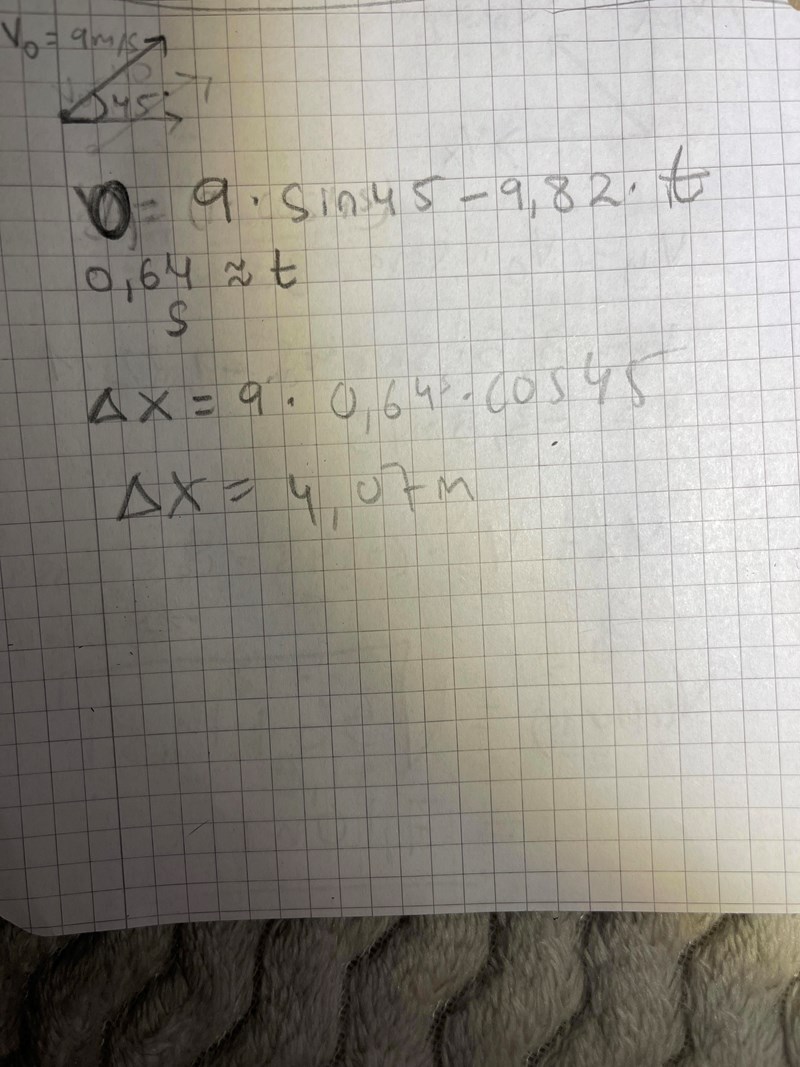 V₀ = 9 m/s
45°
0 = 9 · sin 45 - 9,82 · t
0,64 ≈ t
s
Δx = 9 · 0,64 · cos 45
Δx = 4,07 m